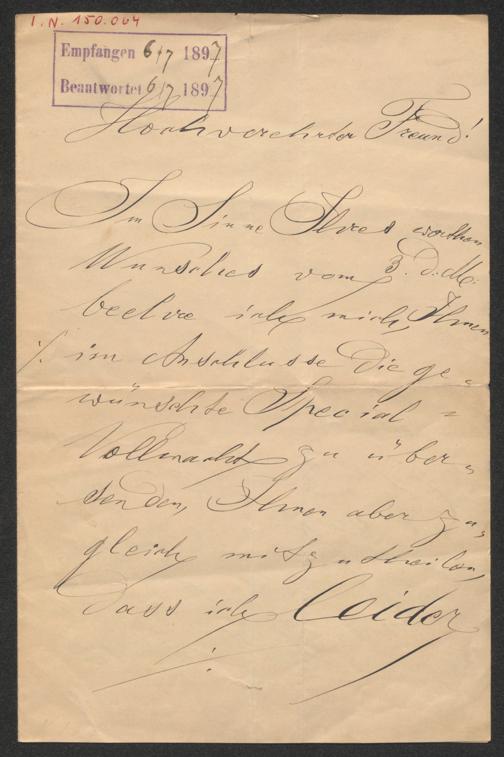 I.N. 150.064
Empfangen 6/7 1897
Beantwortet 6/7 1897
Hochverehrter Freund!
Im Sinne Ihres werthen
Wunsches vom 3. d. Mts.
beehre ich mich, Ihnen
./. im Anschlusse die ge„
wünschte Special =
Vollmacht zu über„
senden, Ihnen aber zu„
gleich mitzutheilen,
dass ich leider
./.